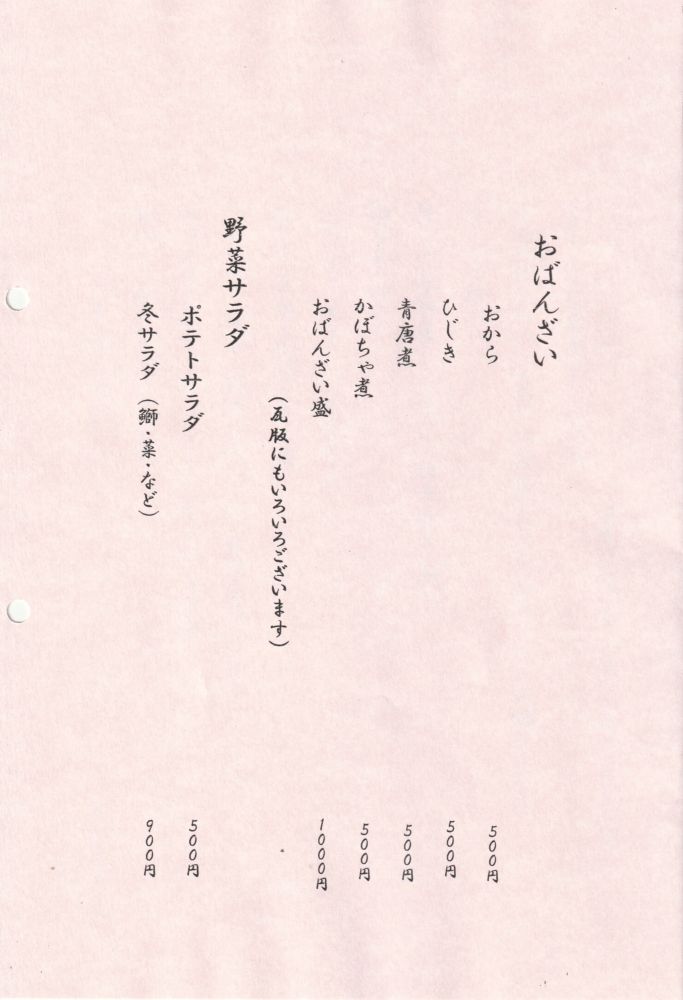 おばんざい
おから 500円
ひじき 500円
青唐煮 500円
かぼちゃ煮 500円
おばんざい盛 1000円
（瓦版にもいろいろございます）
野菜サラダ
ポテトサラダ 500円
冬サラダ（鰤・菜・など） 900円